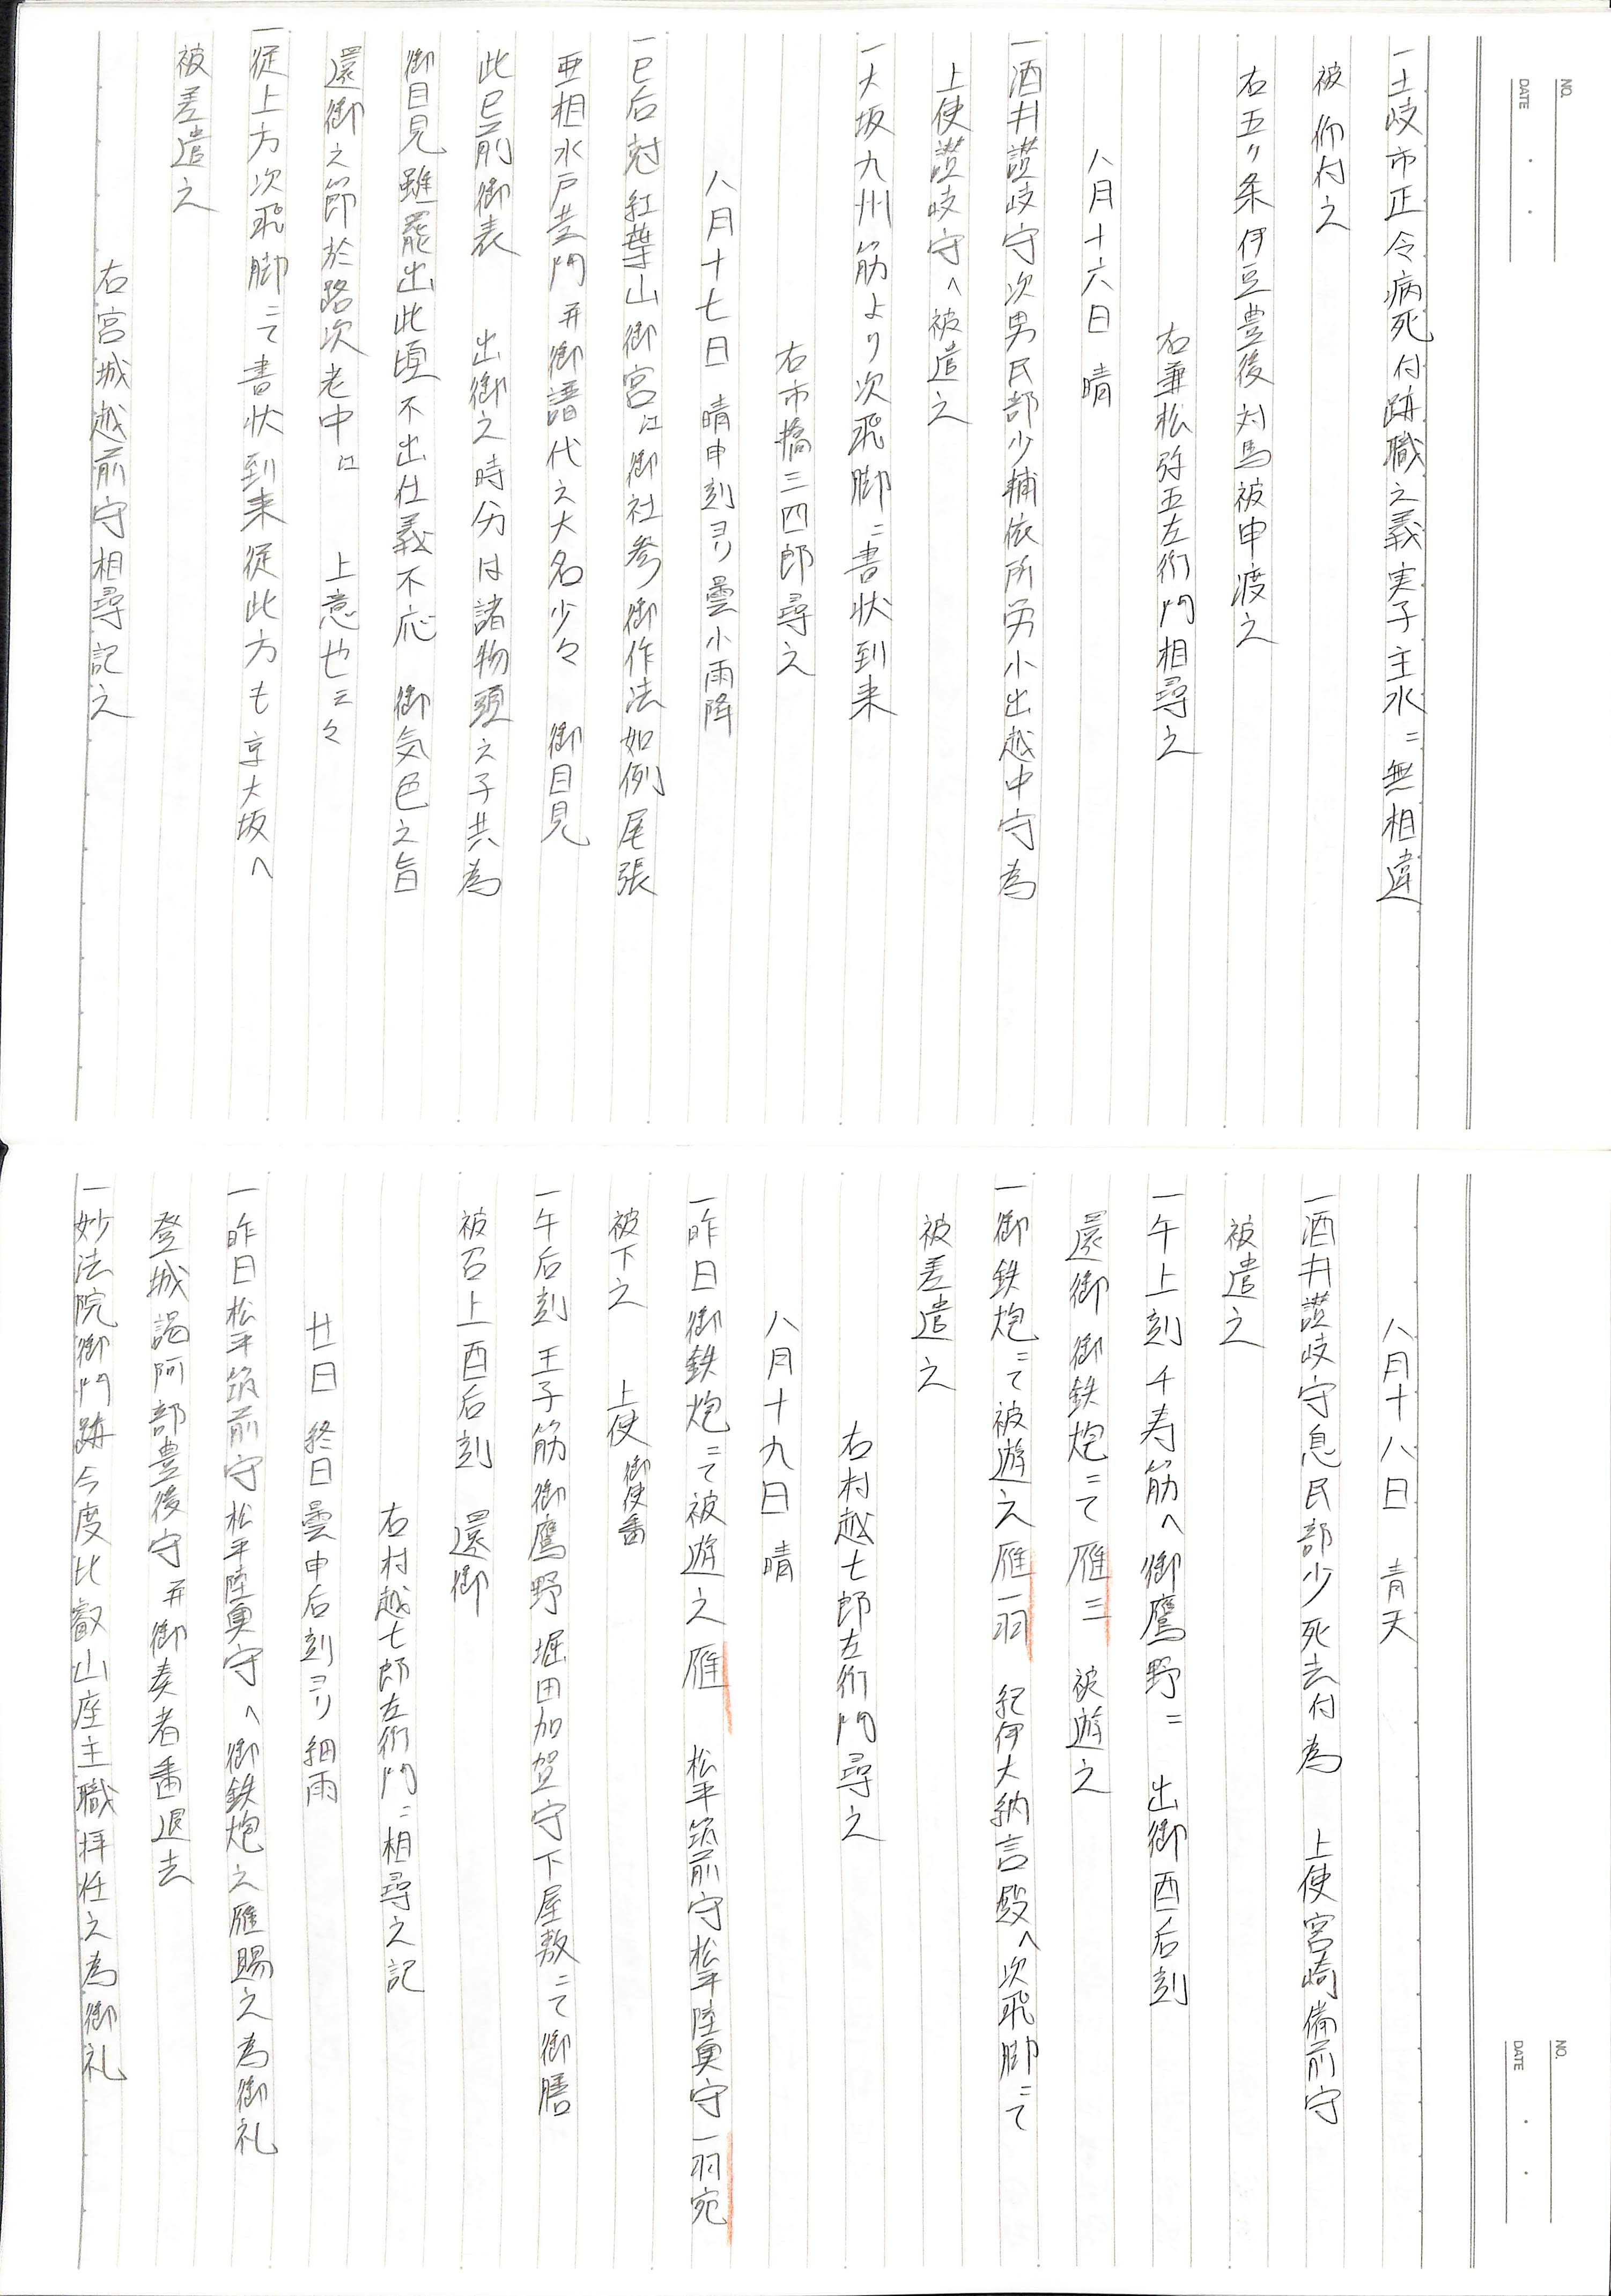 NO.
DATE
一土岐市正令病死付跡職之義実子主水ニ無相違
被仰付之
右五ヶ条伊豆豊後対馬被申渡之
右兼松弥五左衛門相尋之
八月十六日 晴
一酒井讃岐守次男民部少輔依所労小出越中守為
上使讃岐守へ被遣之
一大坂九州筋より次飛脚ニ書状到来
右市橋三四郎尋之
八月十七日 晴申刻ヨリ曇小雨降
一巳后刻 紅葉山御宮江御社参御作法如例尾張
亜相水戸黄門并御譜代之大名少々 御目見
此已前御表 出御之時分は諸物頭之子共為
御目見雖罷出此頃不出仕義不応 御気色之旨
還御之節於路次老中江 上意也云々
一従上方次飛脚ニて書状到来従此方も京大坂へ
被差遣之
右宮城越前守相尋記之
NO.
DATE
八月十八日 青天
一酒井讃岐守息民部少死去付為 上使宮崎備前守
被遣之
一午上刻千寿筋へ御鷹野ニ 出御酉后刻
還御 御鉄炮ニて雁三 被遊之
一御鉄炮ニて被遊之雁一羽 紀伊大納言殿へ次飛脚ニて
被差遣之
右村越七郎左衛門尋之
八月十九日 晴
一昨日御鉄炮ニて被遊之雁 松平筑前守松平陸奥守一羽宛
被下之 上使御使番
一午后刻王子筋御鷹野堀田加賀守下屋敷ニて御膳
被召上酉后刻 還御
右村越七郎左衛門ニ相尋之記
廿日 終日曇申后刻ヨリ細雨
一昨日松平筑前守松平陸奥守へ御鉄炮之雁賜之為御礼
登城謁阿部豊後守并御奏者番退去
一妙法院御門跡今度比叡山座主職拝任之為御礼